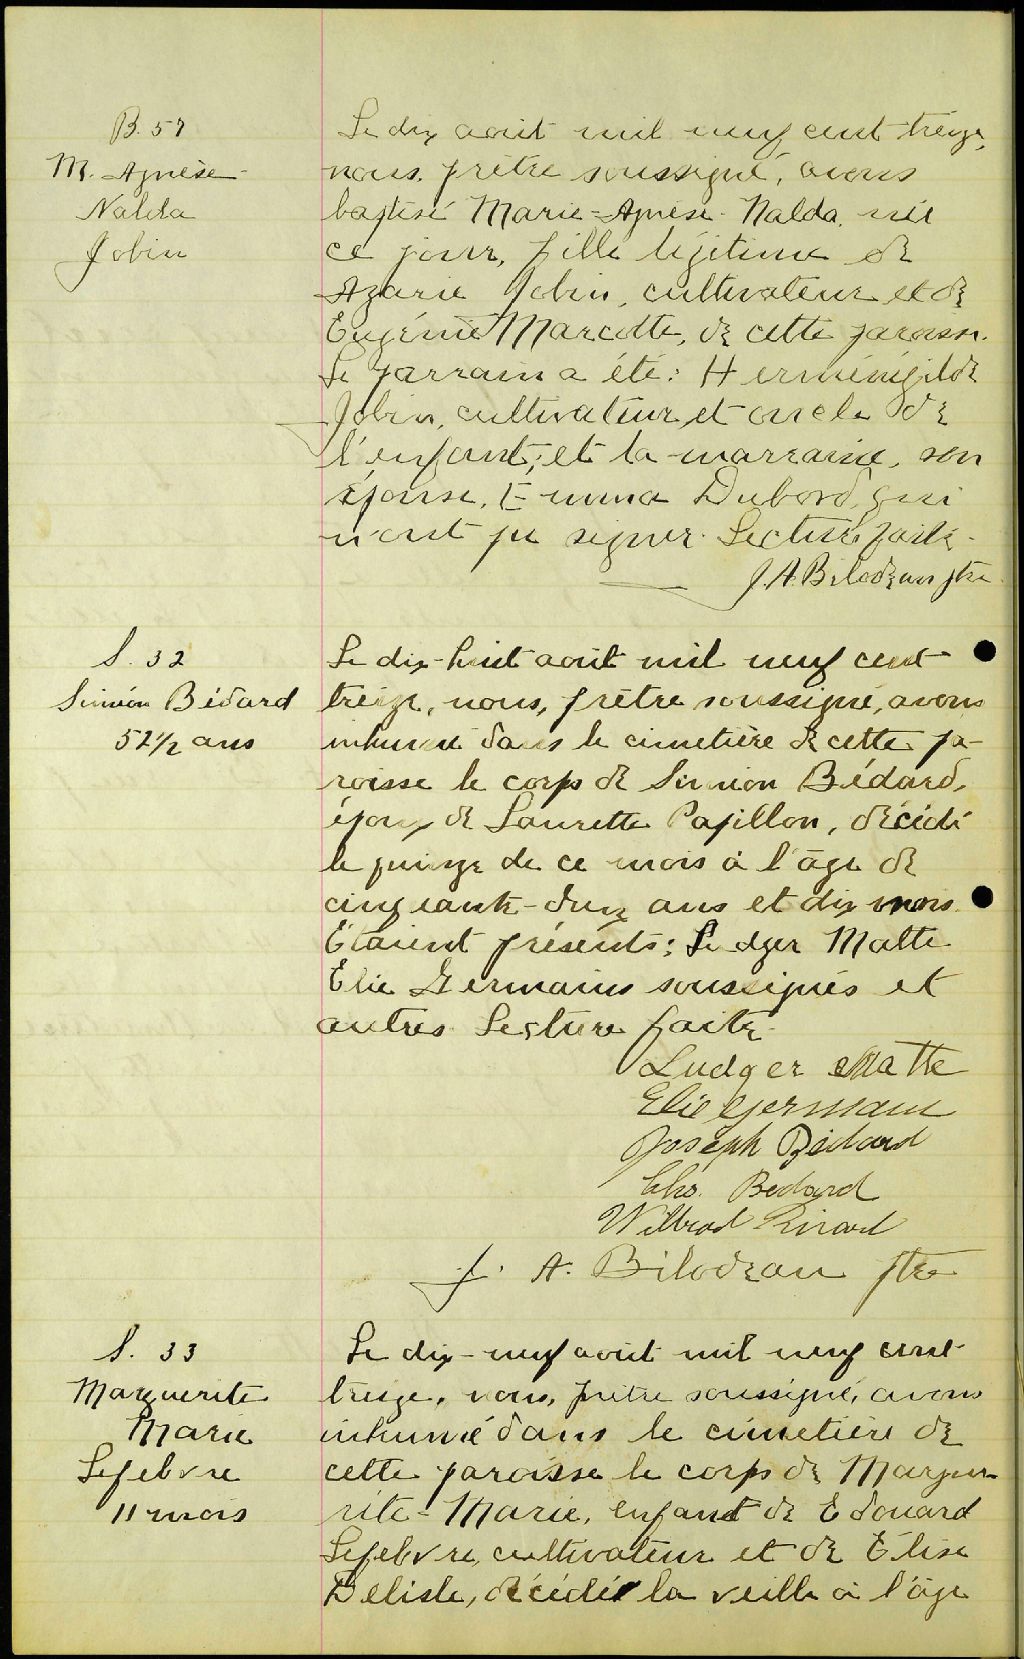 B. 57
M. Agnèse
Nalda
Jobin
Le dix août mil neuf cent treize,
nous, prêtre soussigné, avons
baptisé Marie-Agnèse-Nalda, née
ce jour, fille légitime de
Azarie Jobin, cultivateur et de
Eugénie Marcotte, de cette paroisse.
Le parrain a été: Herménégilde
Jobin, cultivateur et oncle de
l'enfant, et la marraine, son
épouse, Emma Dubord, qui
n'ont pu signer. Lecture faite.
J. A. Bilodeau ptre
S. 32
Siméon Bédard
52 1/2 ans
Le dix-huit août mil neuf cent
treize, nous, prêtre soussigné, avons
inhumé dans le cimetière de cette pa-
roisse le corps de Siméon Bédard,
époux de Laurette Papillon, décédé
le quinze de ce mois à l'âge de
cinquante-deux ans et dix mois.
Étaient présents: Ludger Matte
Elie Germain soussignés et
autres. Lecture faite.
Ludger Matte
Elie Germain
Joseph Bédard
Chs. Bedard
Wilbrod
J. A. Bilodeau ptre
S. 33
Marguerite
Marie
Lefebvre
11 mois
Le dix-neuf août mil neuf cent
treize, nous, prêtre soussigné, avons
inhumé dans le cimetière de
cette paroisse le corps de Margue-
rite-Marie, enfant de Edouard
Lefebvre, cultivateur et de Élise
Delisle, décédée la veille à l'âge